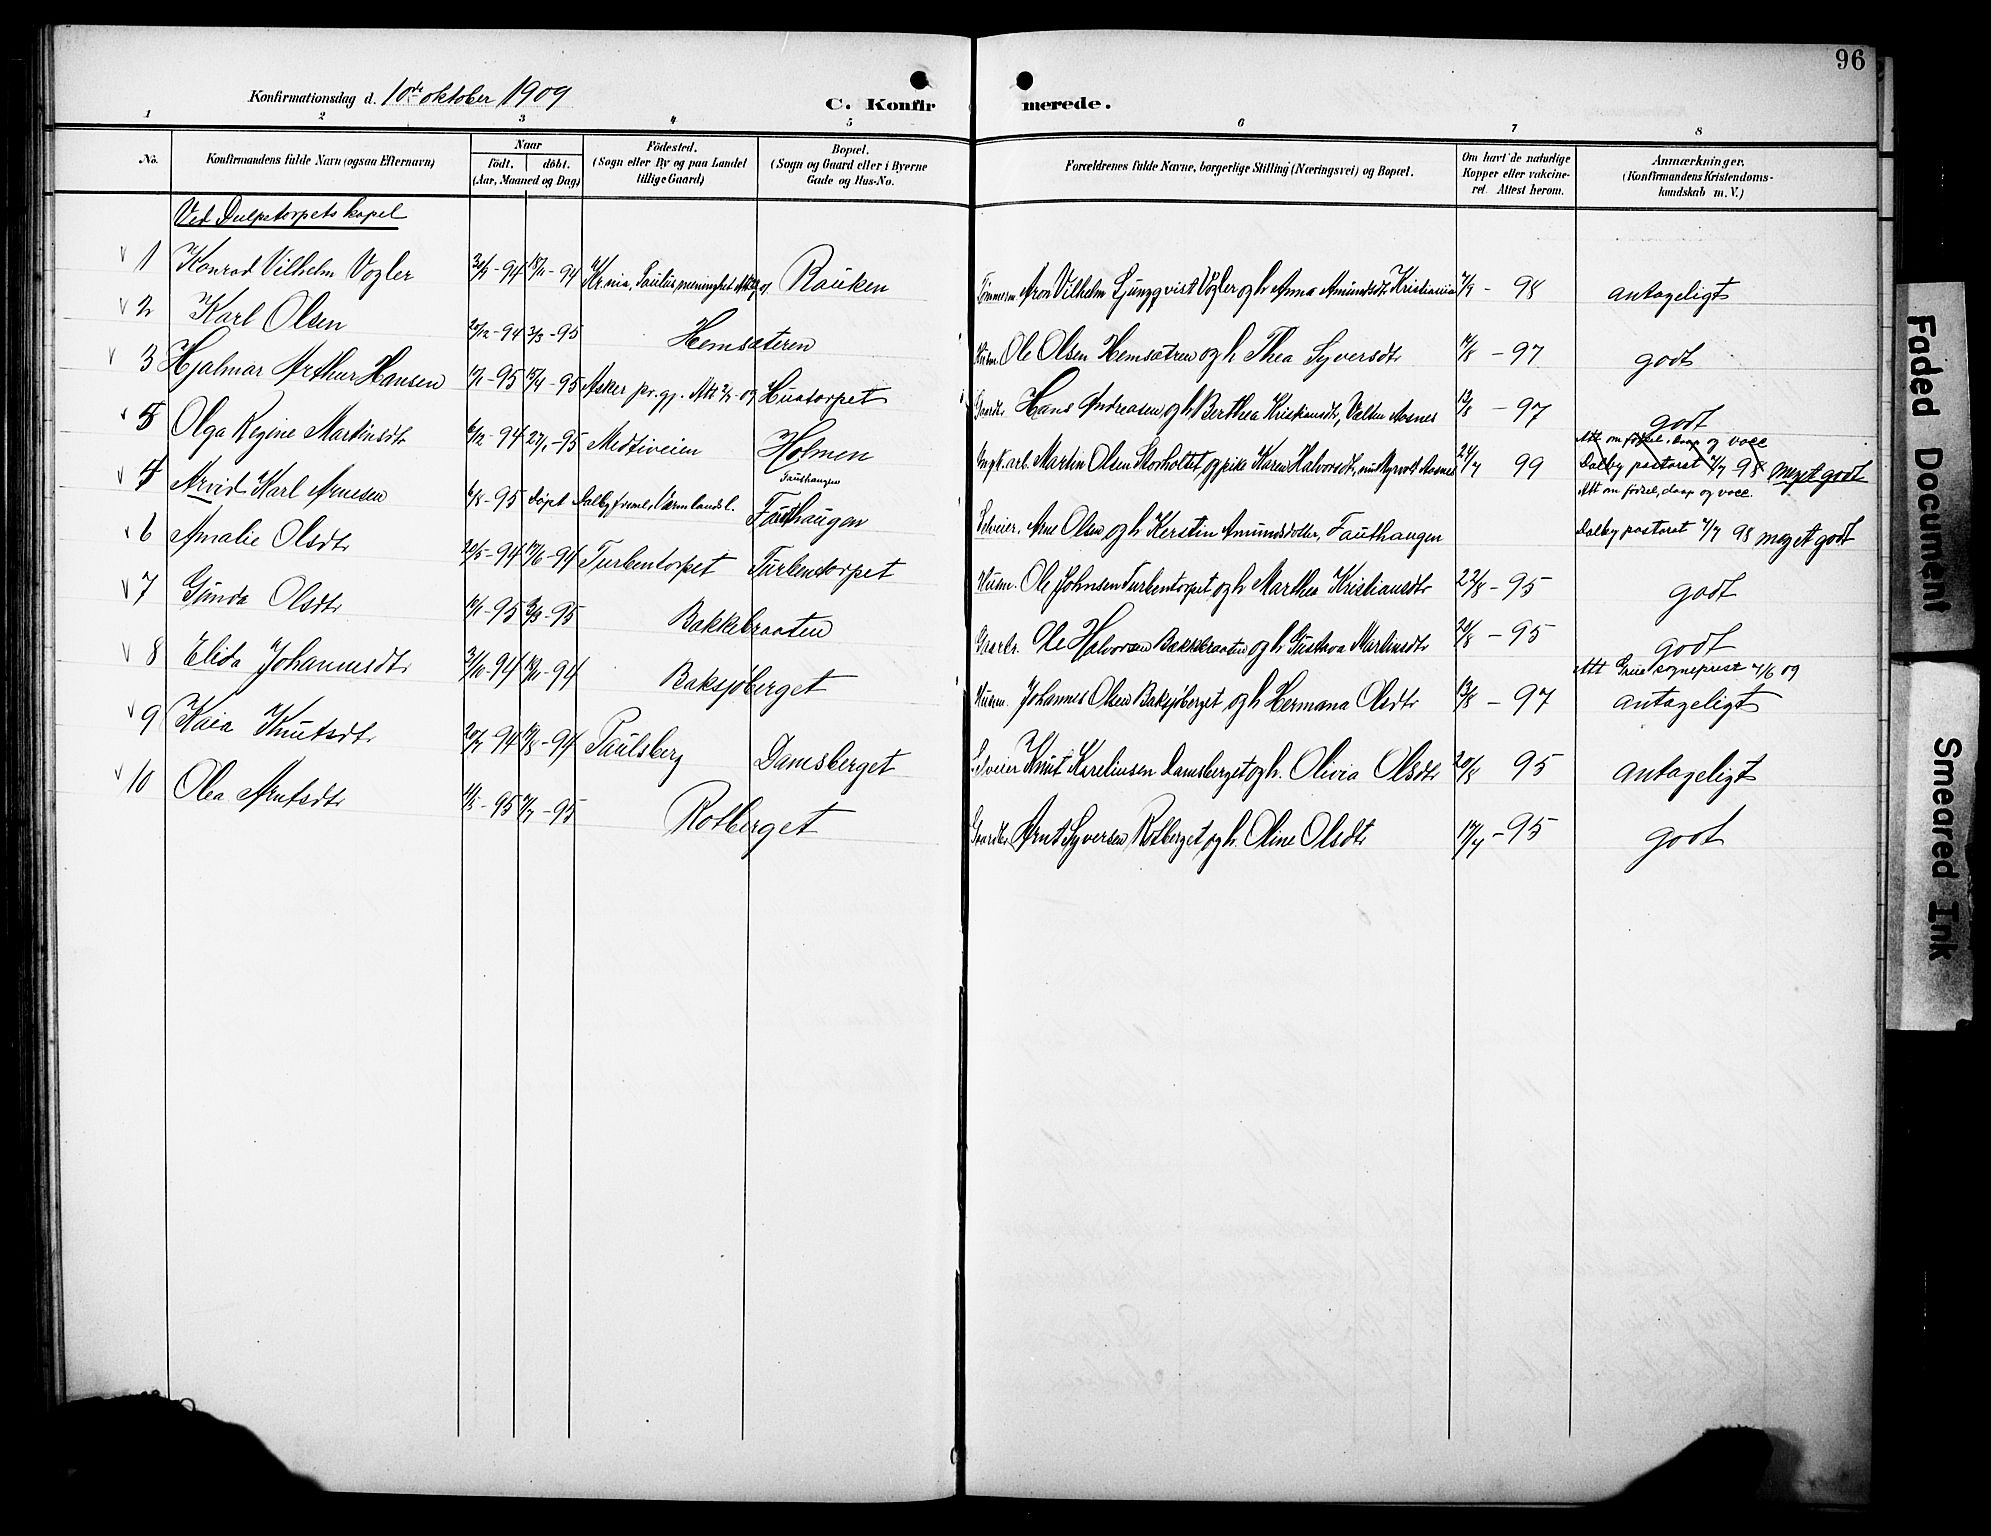 96
Konfirmationsdag d. 10de oktober 1909
C. Konfir merede.
1 2 3 4 5 6 7 8
No. Konfirmandens fulde Navn (ogsaa Efternavn) Naar födt. döbt. (Aar, Maaned og Dag) Födested. (Sogn eller By og paa Landet tillige Gaard) Bopæl. (Sogn og Gaard eller i Byerne Gade og Hus-No. Forældrenes fulde Navne, borgerlige Stilling (Næringsvei) og Bopæl. Om havt de naturlige Kopper eller vakcineret. Attest herom. Anmærkninger. (Konfirmandens Kristendomskundskab m. V.)
Ved Dulpetorpets kapel
1 Konrad Vilhelm Vogler -94 18/11-94 Kr.nia, Paulus menighet Rauken Tömmerm. Aron Vilhelm Ljungqvist Vogler og h Anna Amundsdtr Kristiania - 98 antageligt
2 Karl Olsen 20/12-94 3/3-95 Hemsæteren Husm. Ole Olsen Hemsætren og h Thea Syversdtr - 97 godt
3 Hjalmar Arthur Hansen -95 -95 Asker pr.gj. Huatorpet Gaardbr. Hans Andreasen og h Berthea Kristiansdtr, Velten Aasnes 13/8 - 97 godt
5 Olga Regine Martinsdtr 6/12-94 27/1-95 Medtiveien Holmen Martin Olsen Storholtet, og pike Karen Halvorsdtr, 24/7 99 Att om födsel, daap og vacc Dalby pastorat 98 meget godt
4 Arvid Karl Arnesen 6/8-95 Döpt Dalby Fauthaugen Fauthaugen Selveier. Arne Olsen og h Kerstin Amundsdotter, Fauthaugen Att om födsel, daap og vacc. Dalby pastorat 98 meget godt
6 Amalie Olsdtr 20/5-94 17/6-94 Turbentorpet Turbentorpet Husm. Ole Johnsen Turbentorpet og h Marthea Kristiansdtr 22/8 - 95 godt
7 Gunda Olsdtr -95 3/3-95 Bakkebraaten Gaardbr. Ole Halvorsen Bakkebraaten og h Gustava Martinsdtr 20/8 - 95 godt
8 Elida Johannesdtr 31/10-94 -94 Baksjöberget Husm. Johannes Olsen Baksjöberget og h Hermana Olsdtr 13/8 - 97 Att Grue sogneprest 09 antageligt
9 Kaia Knutsdtr 20/7 94 -94 Paulsberg Damsberget Selveier Knut Karelinsen Damsberget og h. Olivia Olsdtr 20/8 95 antageligt
10 Olea Arntsdtr -95 -95 Rotberget Gaardbr. Arnt Syversen Rotberget og h. Oline Olsdtr -95 godt
Faded Document
Smeared Ink